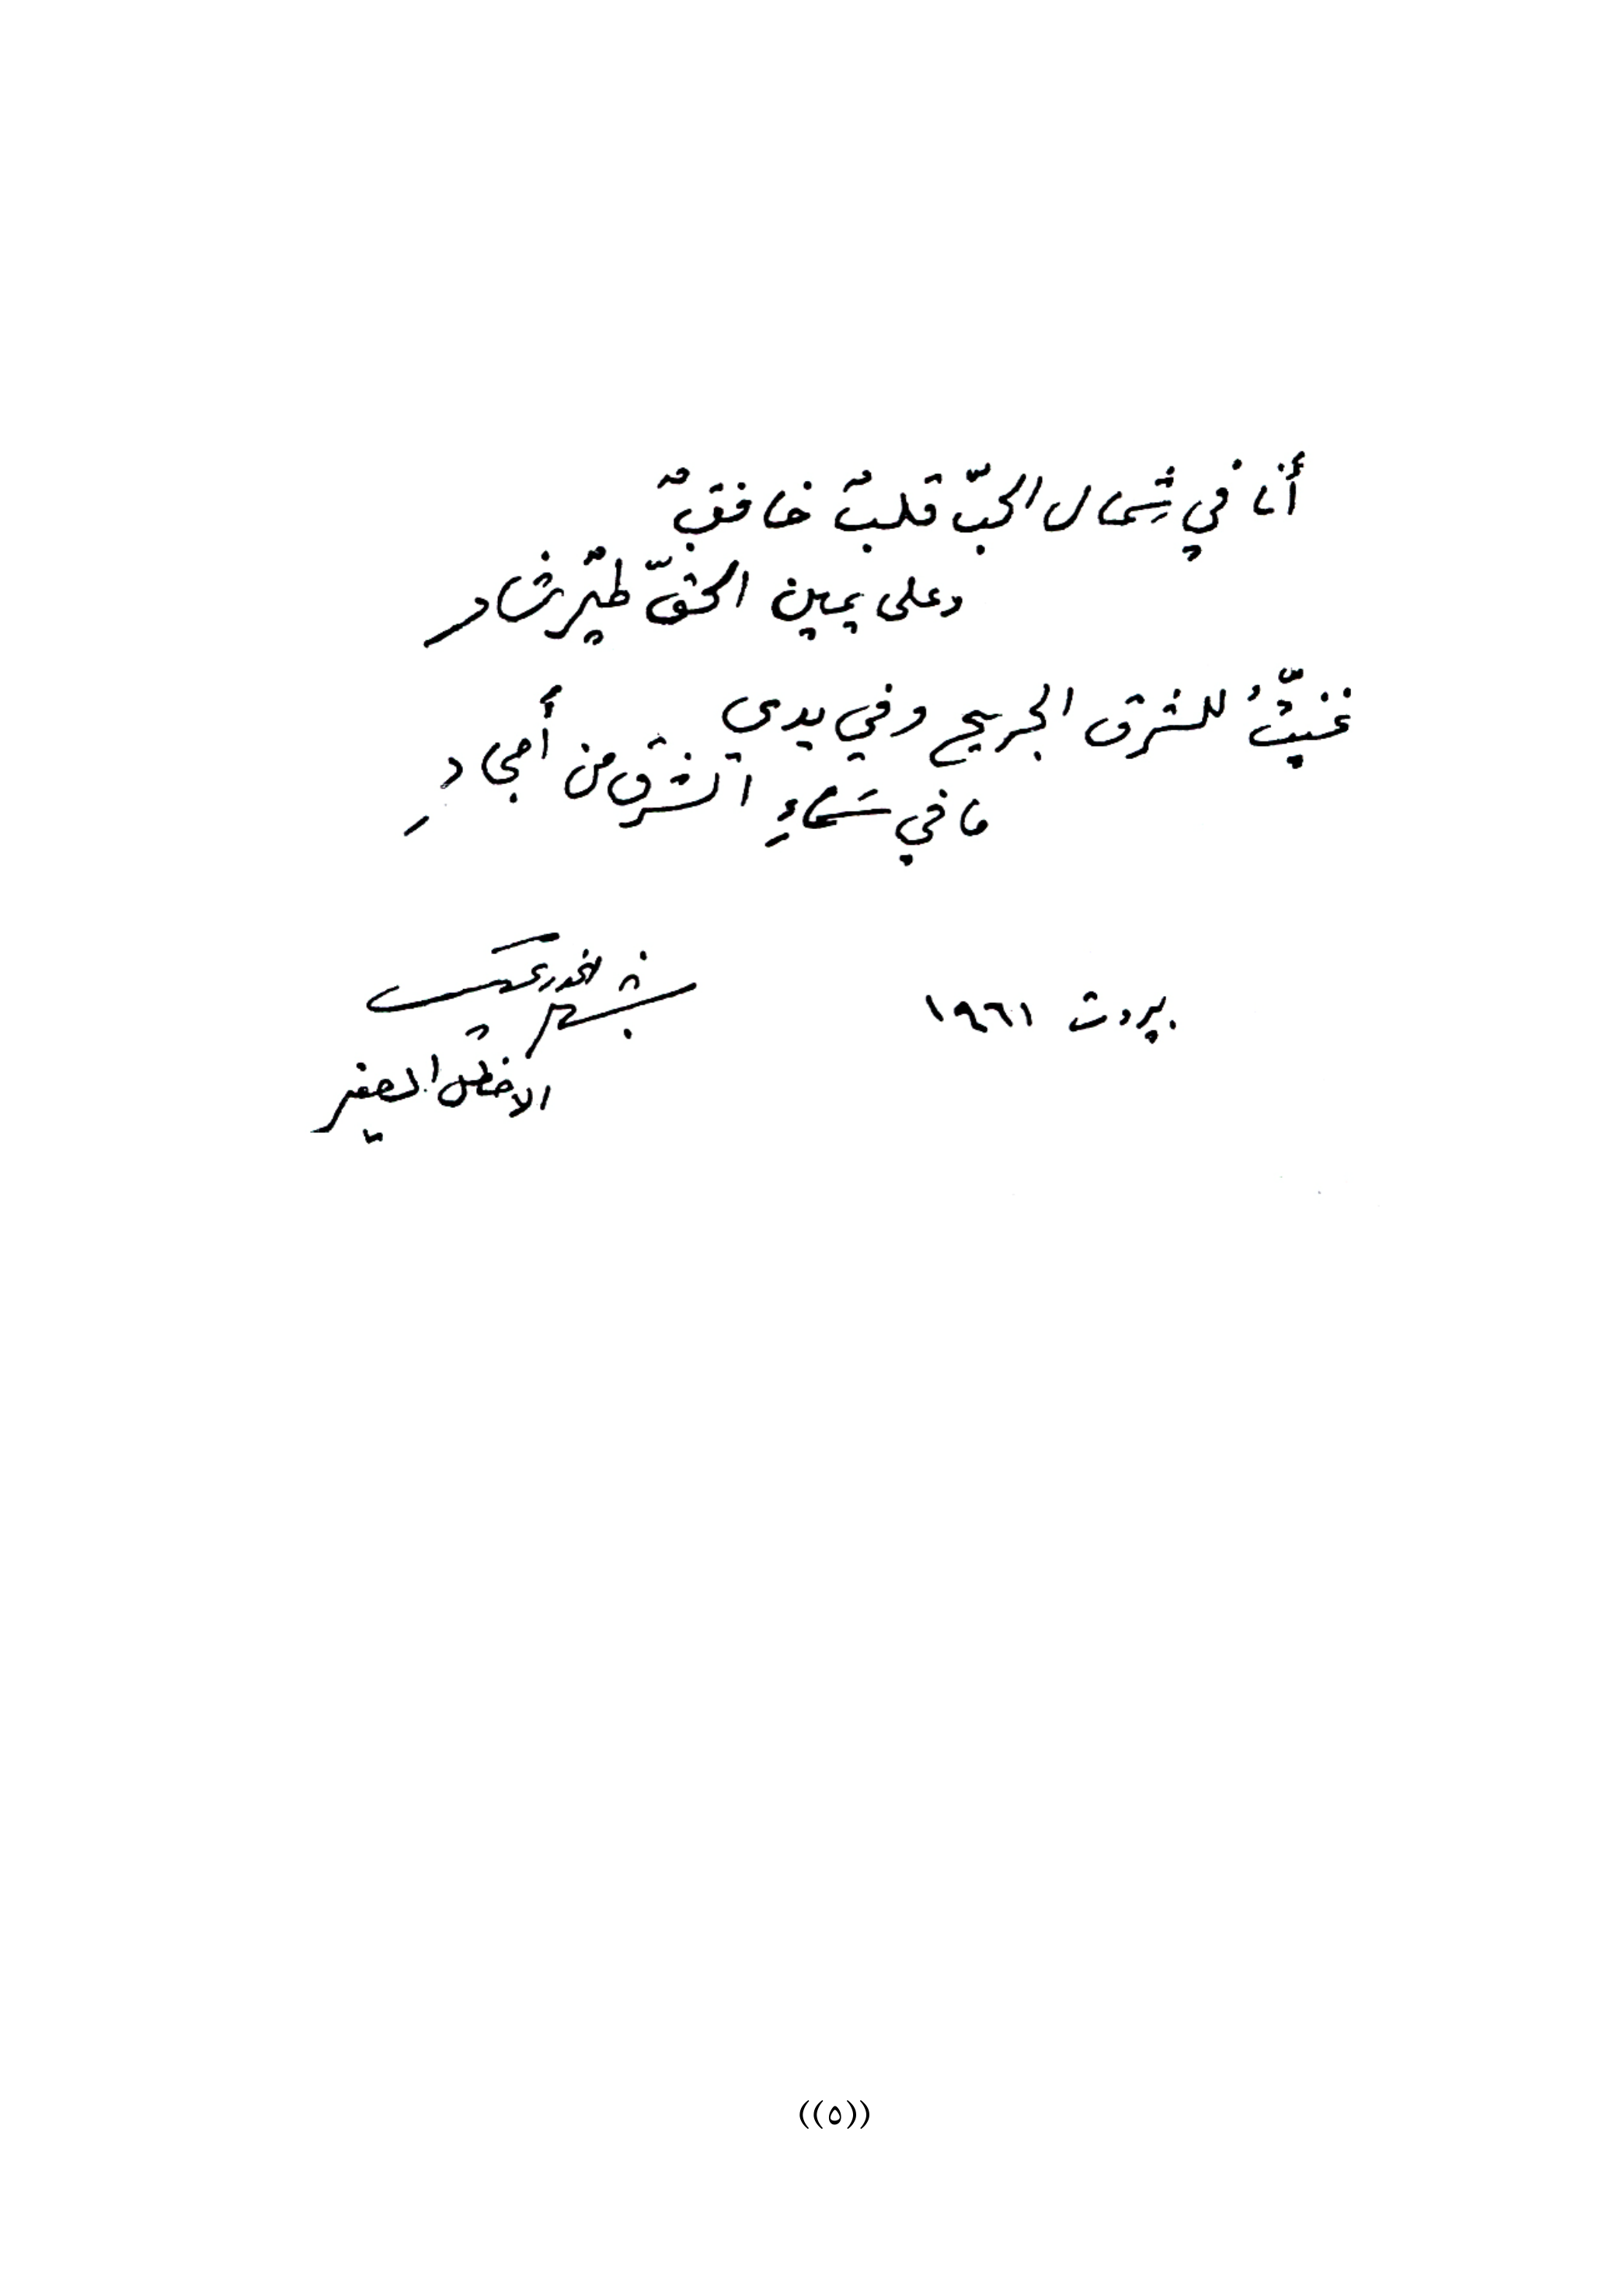 أنا في شِمال الحبّ قلبٌ خافقٌ
وعلى يمين الحقّ طيرٌ شادِ
غنيّتُ للشرق الجريح وفي يدي
ما في سَماءِ الشرق من أمجادِ
بيروت ١٩٦١
بشارة الخوري
الاخطل الصغير
((٥))